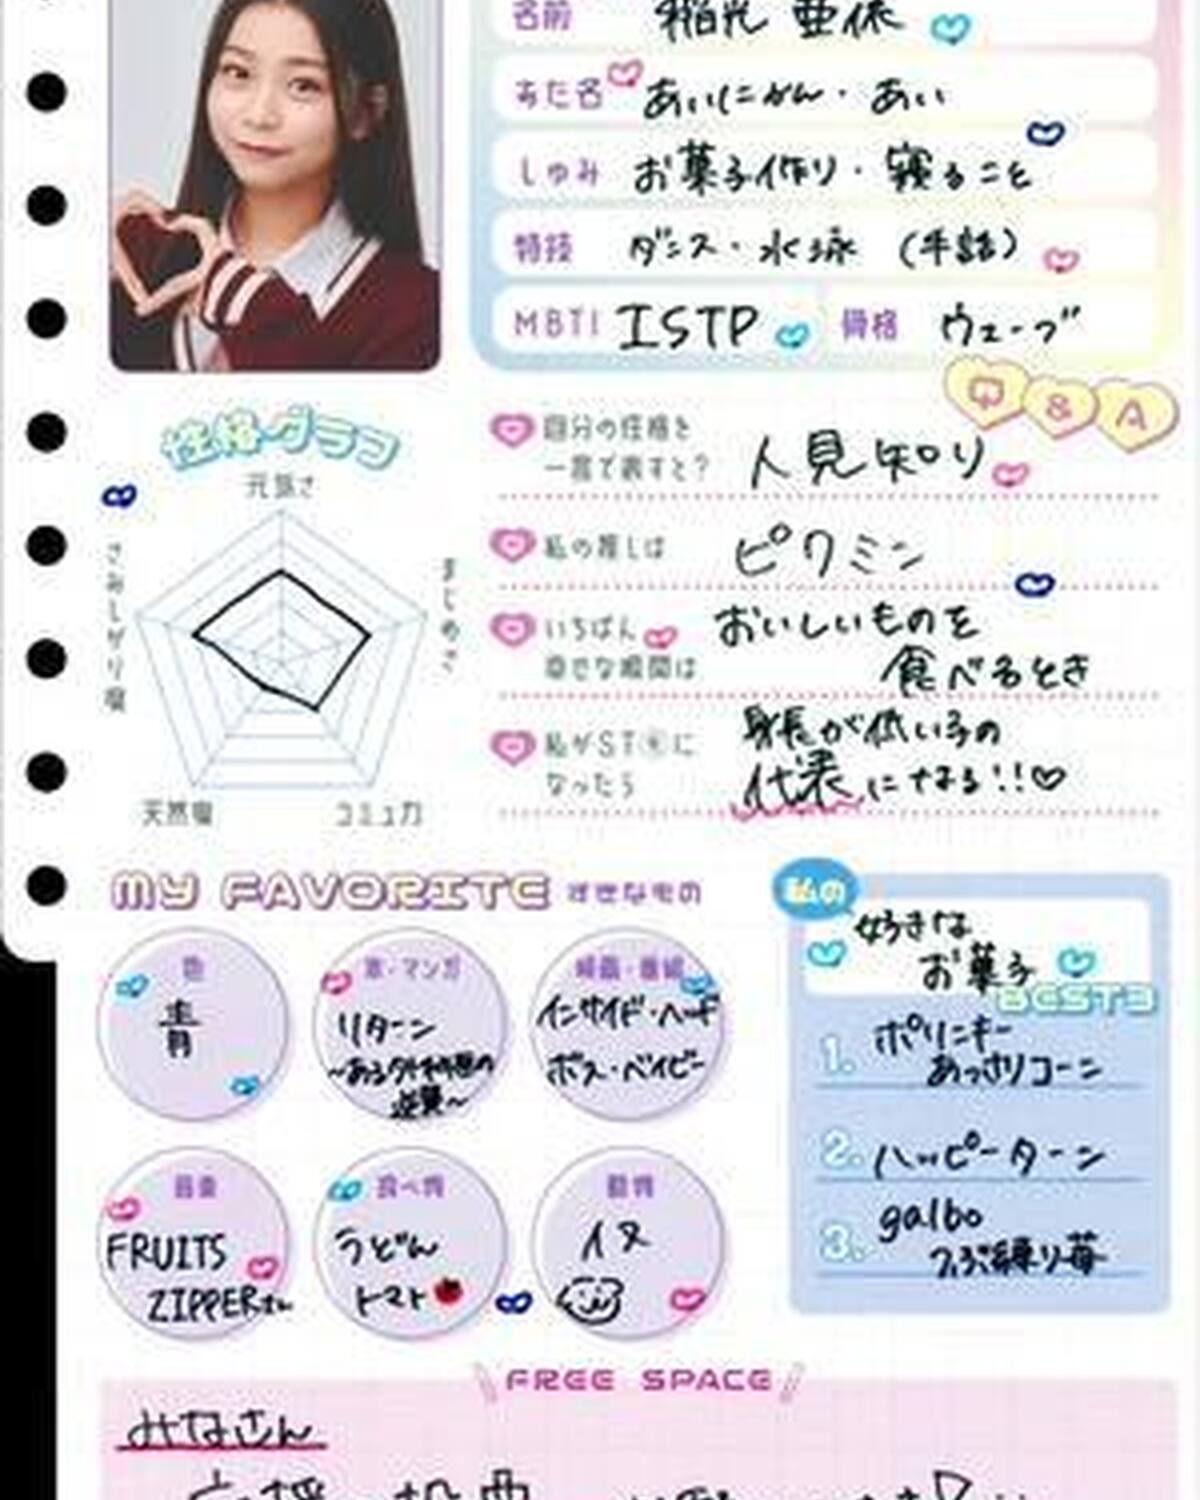 名前 稲光 亜依
あだ名 あいにゃん・あい
しゅみ お菓子作り・寝ること
特技 ダンス・水泳 (手話)
MBTI ISTP 骨格 ウェーブ
性格グラフ
元気さ
まじめさ
コミュ力
天然度
さみしがり度
Q & A
自分の性格を
一言で表すと? 人見知り
私の推しは ピクミン
いちばん おいしいものを
幸せな瞬間は 食べるとき
私がST☆に 身長が低い子の
なったら 代表になる!!♡
MY FAVORITE すきなもの
色
青
本・マンガ
リターン
映画・番組
インサイド・ヘッド
ボス・ベイビー
音楽
FRUITS
ZIPPERさん
食べ物
うどん
トマト
動物
イヌ
私の
好きな
お菓子
BEST3
1. ポリンキー
あっさりコーン
2. ハッピーターン
3. galbo
つぶ練り苺
FREE SPACE
みなさん